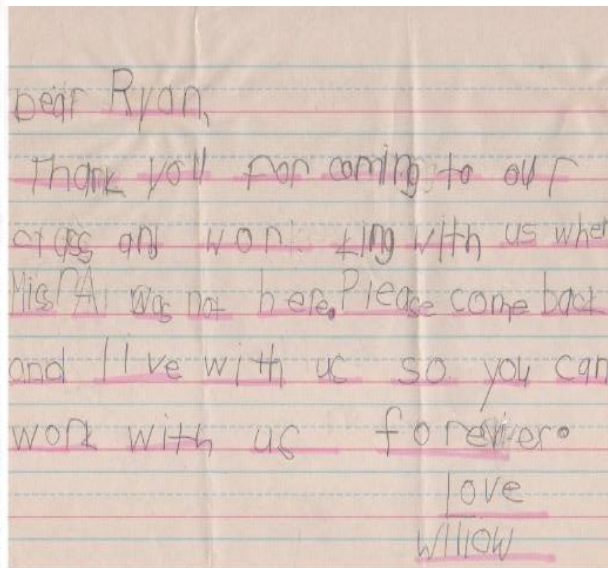 Dear Ryan,
Thank you for coming to our
class and work king with us when
Miss A was not here. Please come back
and live with us so you can
work with us forever.
love
Willow